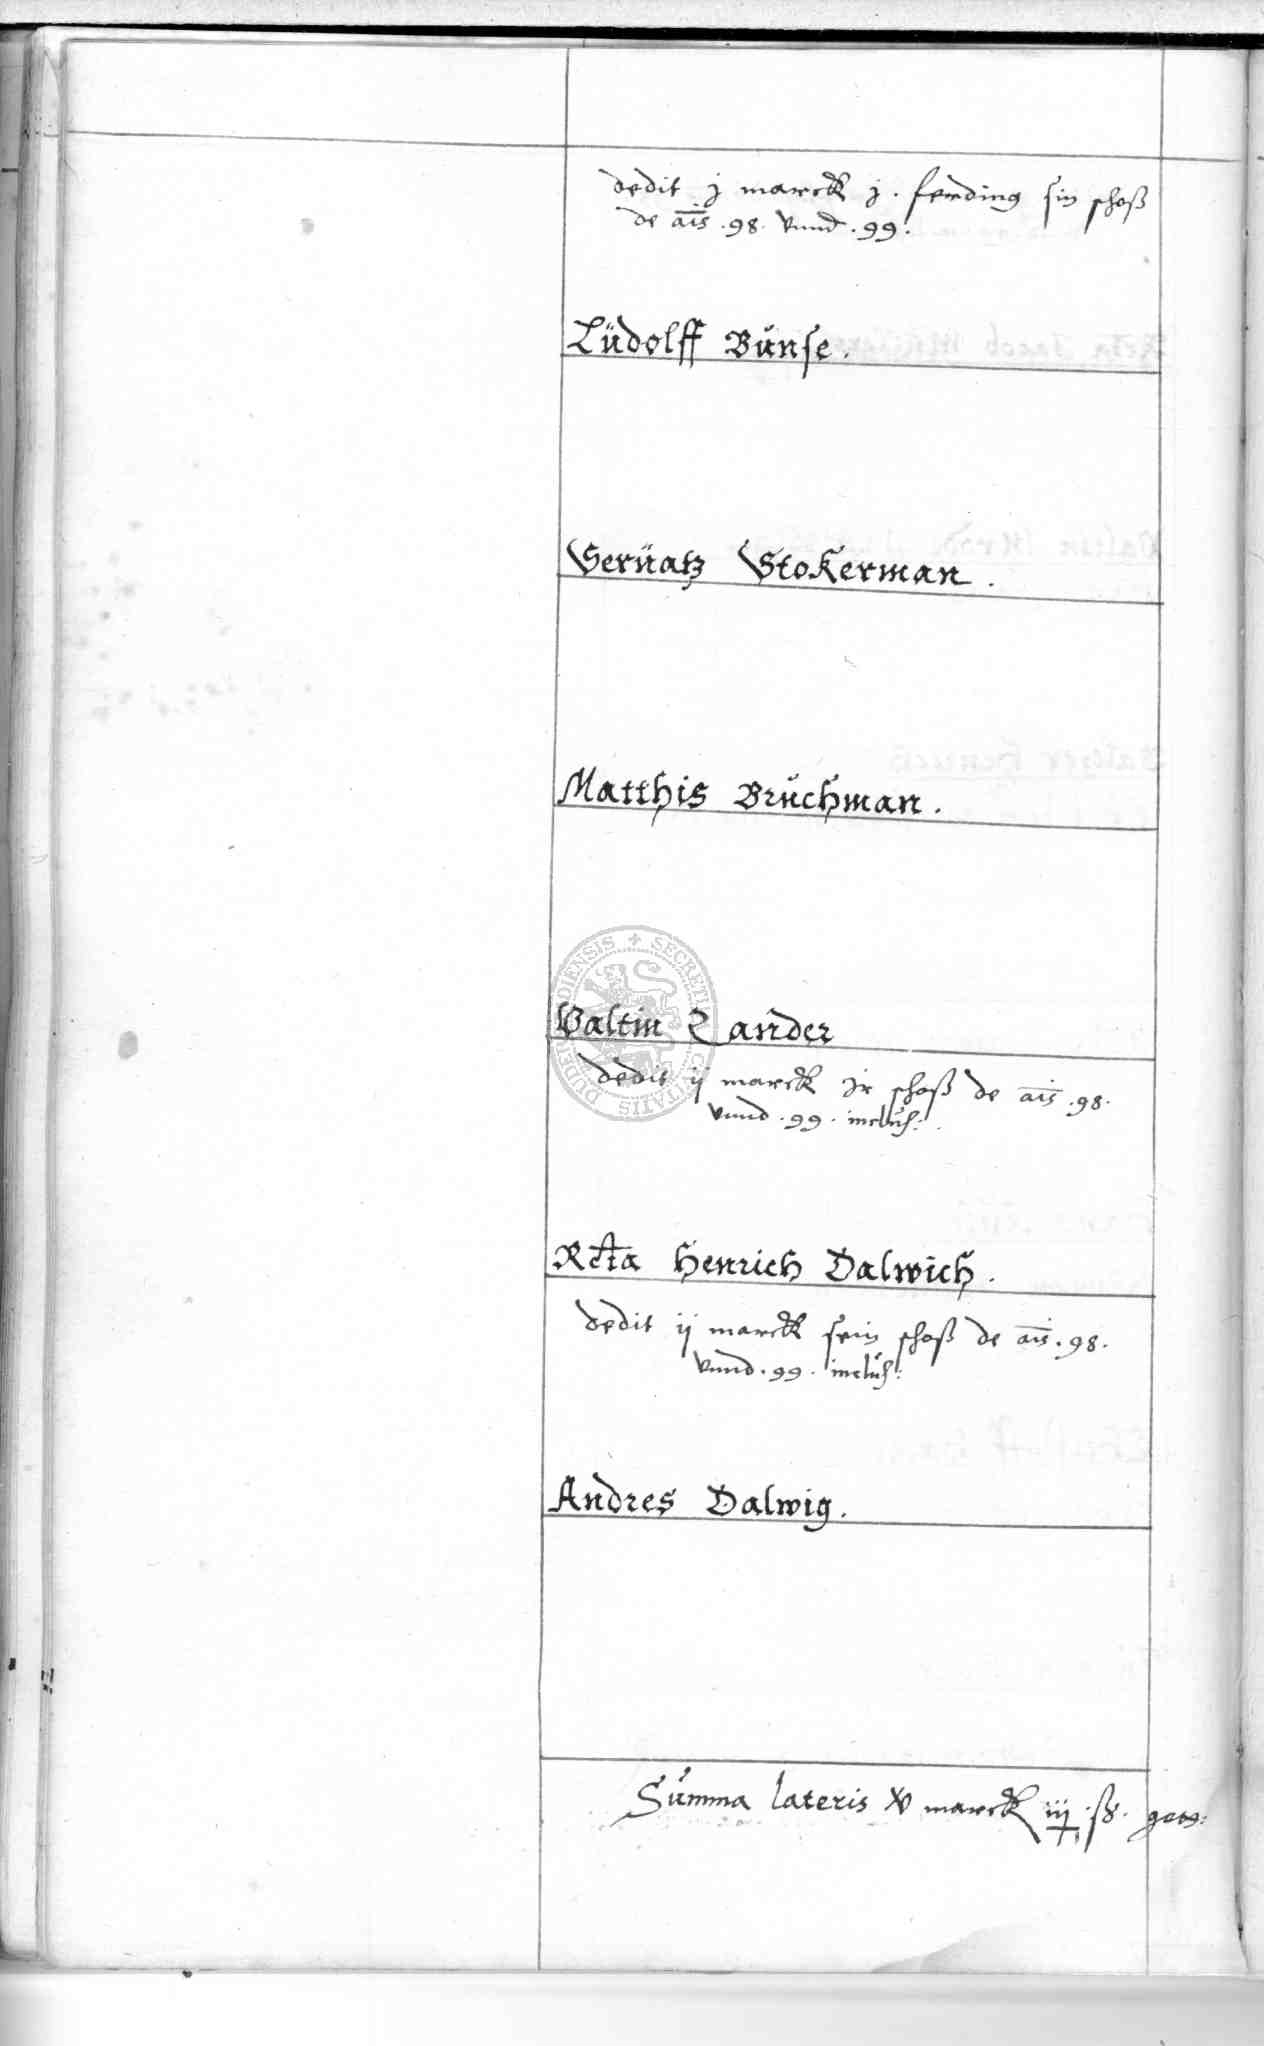 dedit j marck j. ferding sin schoß
de ais .98. vnnd .99.
Lüdolff Bunse.
Seruatz Stokerman.
Matthis Bruchman.
Valtin Zander
dedit ij marck Ir schoß de ais .98.
vnnd .99. inclus:
Rcta Henrich Dalwich.
dedit ij marck sein schoß de ais .98.
vnnd .99. inclus:
Andres Dalwig.
Summa lateris xv marck iij ß.
SECRETIM CIVITATIS DUDERSTADIENSIS